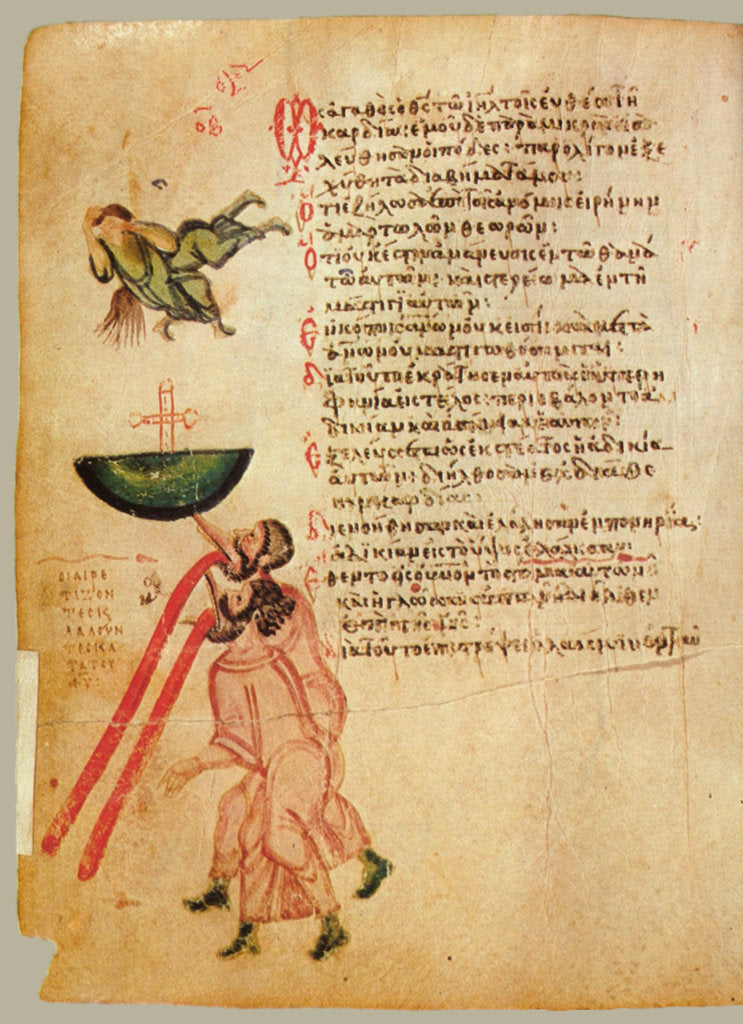 οβ
Ὡς ἀγαθὸς ὁ θς τῶ ιηλ τοῖς εὐθέσι τῆ
καρδία: ἐμοῦ δὲ παρὰ μικρὸν ἐσα
λεύθησαν οἱ πόδες: παρολίγον ἐξε
χύθη τὰ διαβήματά μου:
Ὅτι ἐζήλωσα ἐπὶ τοῖς ἀνόμοις εἰρήνην
ἁμαρτωλῶν θεωρῶν:
Ὅτι οὐκ ἔστιν ἀνάνευσις ἐν τῶ θανά
τω αὐτῶν: καὶ στερέωμα ἐν τῆ
μάστιγι αὐτῶν:
Ἐν κόποις ανων οὐκ εἰσὶ: καὶ μετὰ
ανων οὐ μαστιγωθήσονται:
Διὰ τοῦτο ἐκράτησεν αὐτοὺς ἡ ὑπερη
φανία εἰς τέλος: περιεβάλοντο ἀ
δικίαν καὶ ἀσέβειαν ἑαυτῶν:
Ἐξελεύσεται ὡς ἐκ στέατος ἡ ἀδικία
αὐτῶν: διήλθοσαν εἰς διάθε
σιν καρδίας:
Διενοήθησαν καὶ ἐλάλησαν ἐν πονηρία:
ἀδικίαν εἰς τὸ ὕψος ἐλάλησαν:
Ἔθεντο εἰς οὐνον τὸ στόμα αὐτῶν
καὶ ἡ γλῶσσα αὐτῶν διῆλθεν
ἐπὶ τῆς γῆς:
Διὰ τοῦτο ἐπιστρέψει ὁ λαός
ΟΙ ΑΙΡΕ
ΤΙΖΟΝ
ΤΕΣ
ΛΑΛΟΥΝ
ΤΕΣ ΚΑ
ΤΑ ΤΟΥ
ΘΥ: